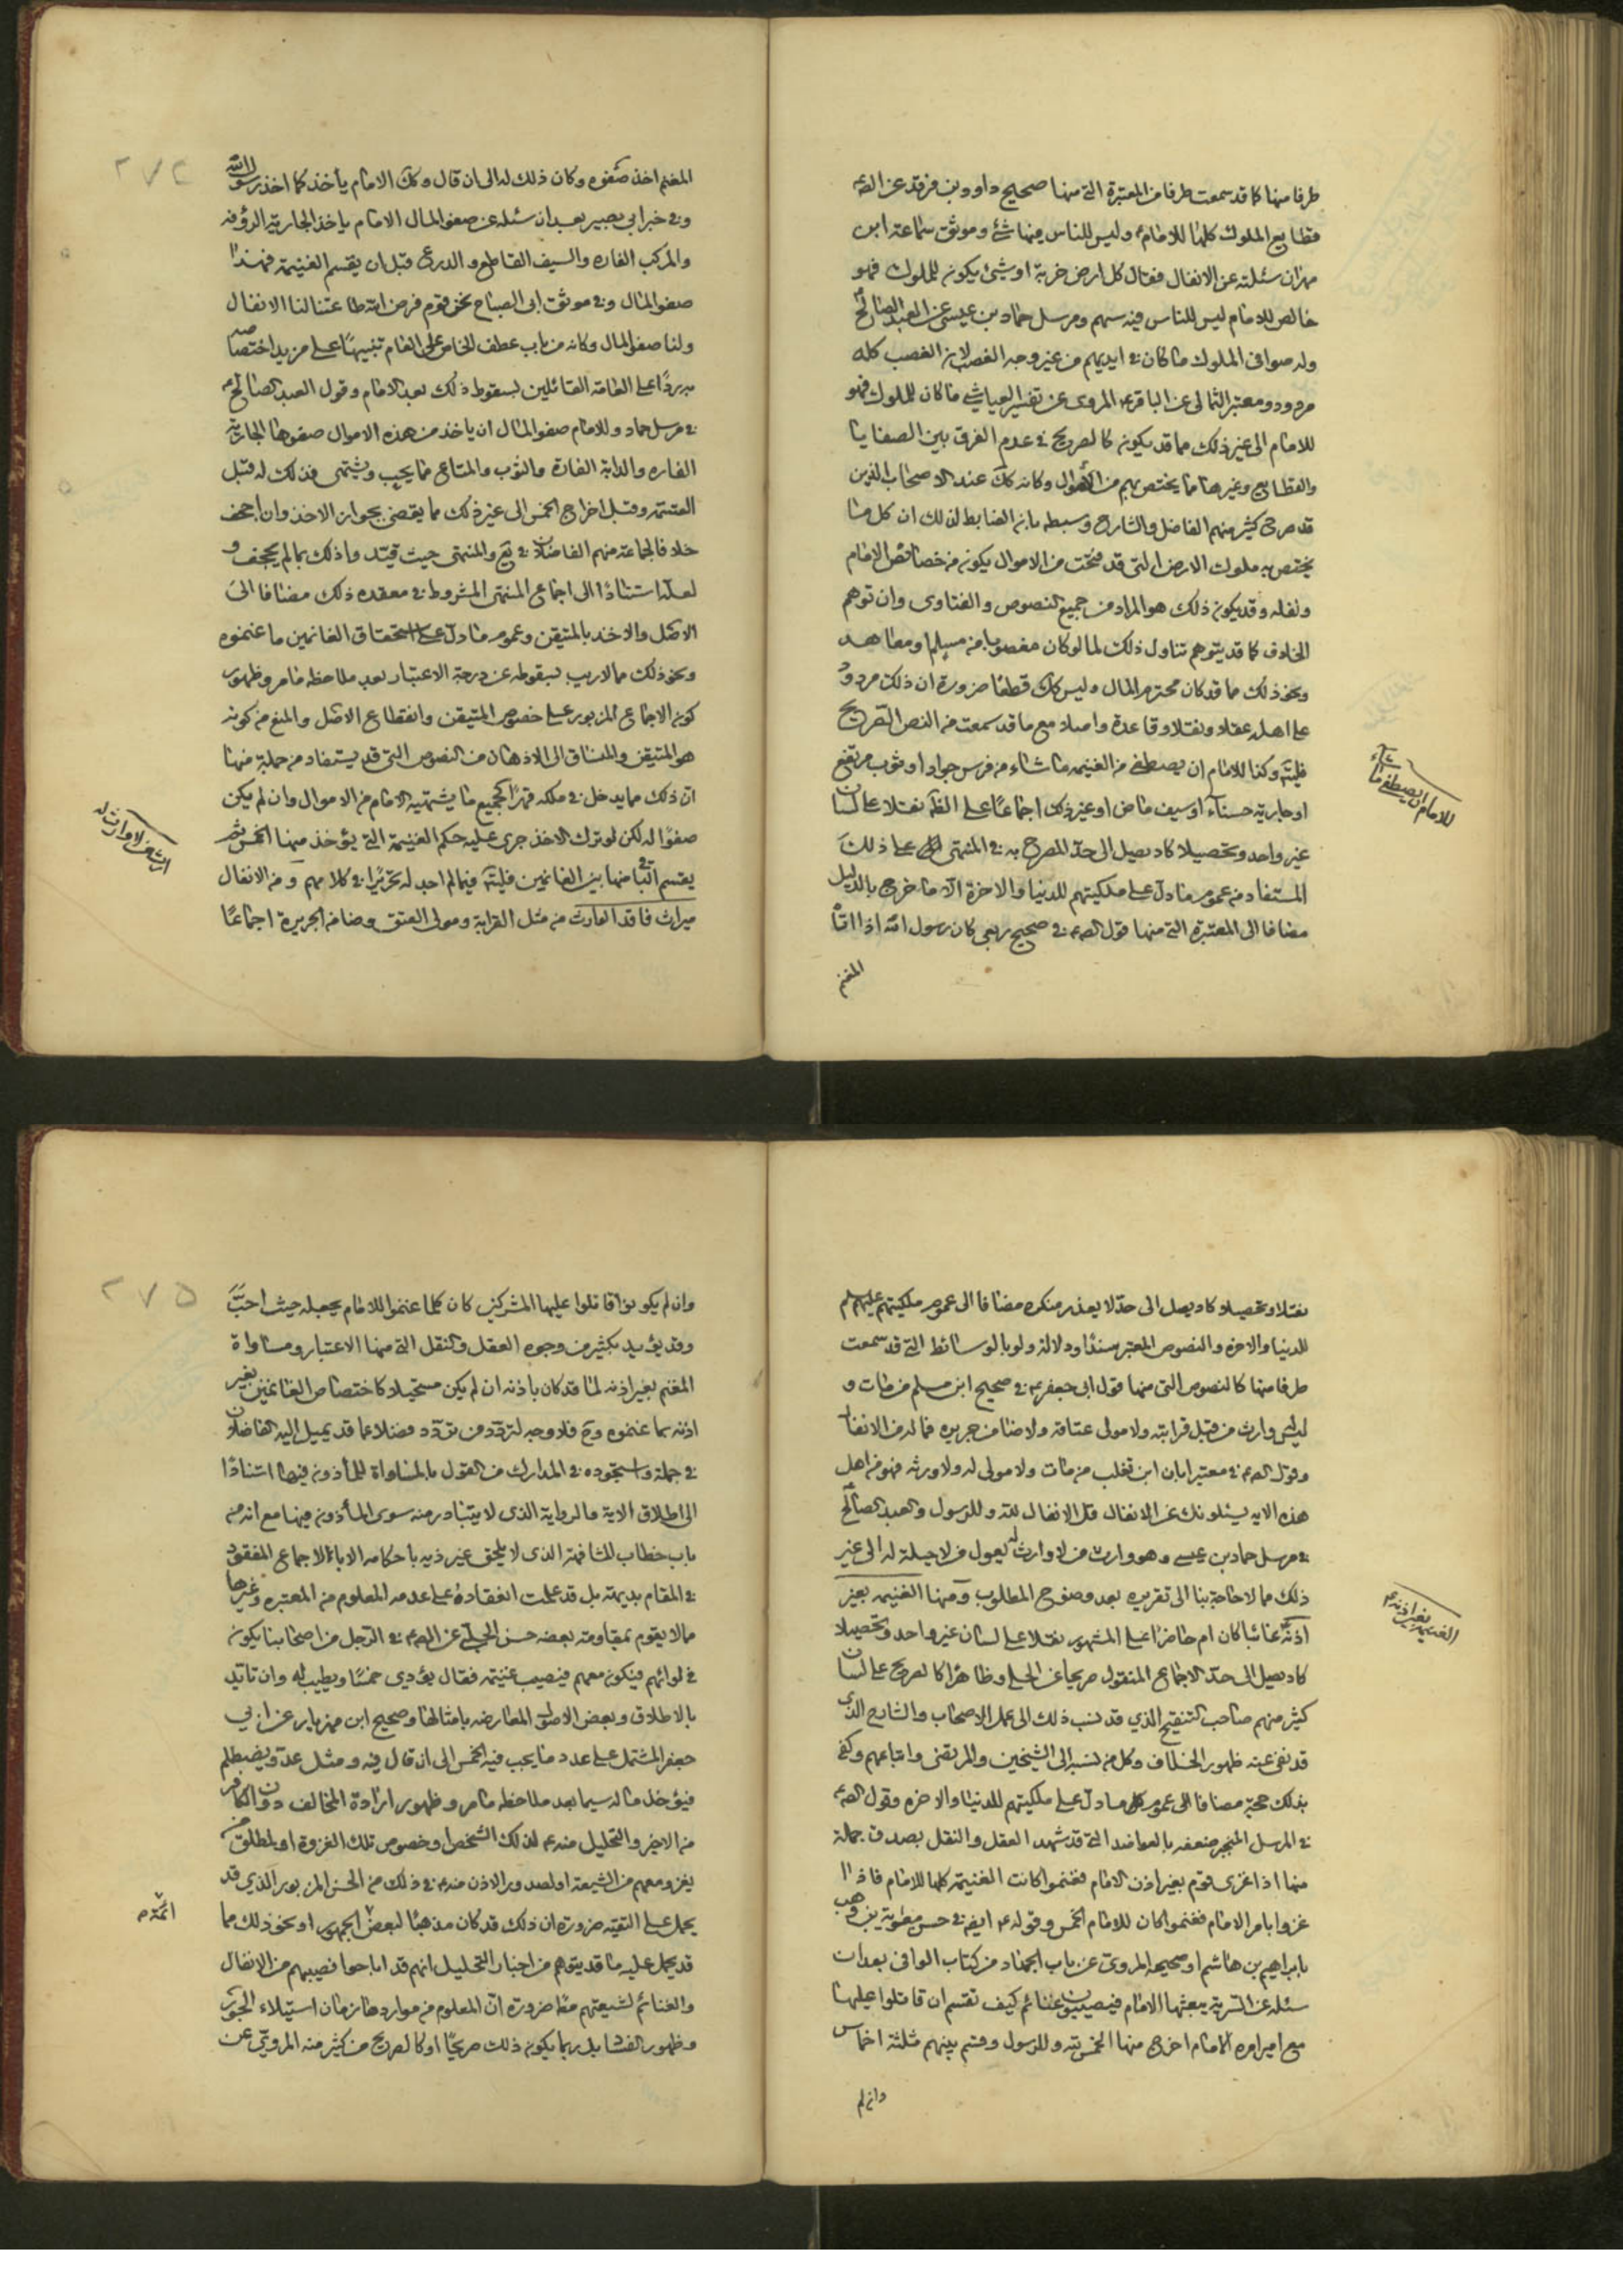 طرفا منها كما قد سمعت طرفا من المعتبرة التى منها صحيح داود بن فرقد عن الصه
قطايع الملوك كلها للامامؑ وليس للناس منها شئ وموثق سماعة ابن
مهران سئلته عن الانفال فقال كل ارض خربة او شئ يكون للملوك فهو
خالص للامام ليس للناس فيه سهم ومرسل حماد بن عيسى عن العبد الصالح
وله صوافى الملوك ما كان فى ايديهم من غير وجه الغصب لان الغصب كله
مردود ومعتبر الثمالى عن الباقرؑ المروى عن تفسير العياشى ما كان للملوك فهو
للامام الى غير ذلك مما قد يكون كالصريح فى عدم الفرق بين الصفايا
والقطايع وغيرها مما يختص بهم من الاموال وكانه كك عند الاصحاب الذين
قد صرح كثير منهم الفاضل والشارح وسبطه بان الضابط لذلك ان كل ما
يختص به ملوك الارض التى قد فتحت من الاموال يكون من خصائص الامام
ونفله وقد يكون ذلك هو المراد من جميع النصوص والفتاوى وان توهم
الخلاف كما قد يتوهم تناول ذلك لما لو كان مغصوبا من مسلم او معاهد
ونحو ذلك مما قد كان محترم المال وليس كك قطعا ضرورة ان ذلك مردود
على اهله عقلا ونقلا وقاعدة واصلا مع ما قد سمعت من النص الصريح
فليتّه وكذا للامام ان يصطفى من الغنيمه ما شاء من فرس جواد او ثوب مرتفع
او جارية حسناء او سيف ماض او غير ذلك اجماعًا على الظّه نقلا على لسان
غير واحد وتحصيلا كاد يصل الى حدّ المصرح به فى المنتهى على ذلك
المستفاد من عموم ما دل على ملكيتهم للدنيا والاخرة الا ما خرج بالدليل
مضافا الى المعتبرة التى منها قول الصهؑ فى صحيح ربعى كان رسول الله اذا اتاه
المغنم
للامام ان يصطفى ما شاء
المغنم اخذ صفوه وكان ذلك له الى ان قال وكك الامام يأخذ كما اخذ رسول الله
وفى خبر ابى بصير بعد ان سئله عن صفو المال الامام ياخذ الجارية الروقه
والمركب الفاره والسيف القاطع والدرع قبل ان يقسم الغنيمة فهذا
صفو المال وفى موثق ابى الصباح نحن قوم فرض الله طاعتنا لنا الانفال
ولنا صفو المال وكانه من باب عطف الخاص على العام تنبيهًا على مزيد اختصاصه
به ردًا على العامة القائلين بسقوط ذلك بعد الامام وقول العبد الصالحؑ
فى مرسل حماد وللامام صفو المال ان ياخذ من هذه الاموال صفوها الجارية
الفاره والدابة الفارة والثوب والمتاع مما يحب ويشتهى فذلك له قبل
القسمة وقبل اخراج الخمس الى غير ذلك مما يقضى بجواز الاخذ وان اجحف
خلافا لجماعة منهم الفاضلان فى يع والمنتهى حيث قيّدا ذلك بما لم يجحف و
لعله استنادًا الى اجماع المنتهى المشروط فى معقده ذلك مضافا الى
الاصل والاخذ بالمتيقن وعموم ما دل على استحقاق الغانمين ما غنموه
ونحو ذلك مما لا ريب بسقوطه عن درجة الاعتبار بعد ملاحظة ما مر وظهور
كون الاجماع المزبور على خصوص المتيقن وانقطاع الاصل والمنع من كونه
هو المتيقن والمنساق الى الاذهان من النصوص التى قد يستفاد من جملة منها
ان ذلك مما يدخل فى ملكه قهرًا كجميع ما يشتهيه الامام من الاموال وان لم يكن
صفوًا له لكن لو ترك الاخذ جرى عليه حكم الغنيمة التى يؤخذ منها الخمس ثم
يقسم الباقى منها بين الغانمين فليتّه فيما لم اجد له تحريرًا فى كلامهم ومن الانفال
ميراث فاقد الوارث من مثل القرابة ومولى العتق وضامن الجريرة اجماعًا
٢٧٤
نقلا وتحصيلا كاد يصل الى حدّ لا يعذر منكره مضافا الى عموم ملكيتهم عليهم
للدنيا والاخره والنصوص المعتبر سندًا ودلالة ولو بالوسائط التى قد سمعت
طرفا منها كالنصوص التى منها قول ابى جعفرؑ فى صحيح ابن مسلم من مات و
ليس وارث من قبل قرابته ولا مولى عتاقه ولا ضامن جريره فماله من الانفال
وقول الصهؑ فى معتبر ابان ابن تغلب من مات ولا مولى له ولا ورثه فهو من اهل
هذه الايه يسئلونك عن الانفال قل الانفال لله وللرسول والعبد الصالح
فى مرسل حماد بن عيسى وهو وارث من لا وارث له يعول من لا حيلة له الى غير
ذلك مما لا حاجة بنا الى تقريره بعد وضوح المطلوب ومنها الغنيمه بغير
اذنه غائبا كان ام حاضرًا على المشهور نقلا على لسان غير واحد وتحصيلا
كاد يصل الى حدّ الاجماع المنقول صريحا عن الحلى وظاهرًا كالصريح على لسان
كثير منهم صاحب التنقيح الذي قد نسب ذلك الى عمل الاصحاب والشارح الذى
قد نفى عنه ظهور الخلاف وكل من نسبه الى الشيخين والمرتضى واتباعهم وكفى
بذلك حجة مضافا الى عموم كل ما دل على ملكيتهم للدنيا والاخره وقول الصهؑ
فى المرسل المنجبر ضعفه بالعواضد التى قد شهد العقل والنقل بصدق جملة
منها اذا غزى قوم بغير اذن الامام فغنموا كانت الغنيمة كلها للامام فاذا
غزوا بامر الامام فغنموا كان للامام الخمس وقولهؑ ايضه فى حسن معوية بن وهب
بابراهيم بن هاشم او صحيحه المروى عن باب الجهاد من كتاب الوافى بعد ان
سئله عن السرية يبعثها الامام فيصيبون غنائم كيف تقسم ان قاتلوا عليها
مع امير امره الامام اخرج منها الخمس لله وللرسول وقسم بينهم ثلثة اخماس
وان لم
الغنيمه بغير اذنهؑ
وان لم يكونوا قاتلوا عليها المشركين كان كلما غنموا للامام يجعله حيث احبّ
وقد يؤيد بكثير من وجوه العقل والنقل التى منها الاعتبار ومساواة
المغنم بغير اذنه لما قد كان باذنه ان لم يكن مستحيلا كاختصاص الغانمين بغير
اذنه بما غنموه وح فلا وجه لتردّد من تردّد فضلا عما قد يميل اليه الفاضلان
فى جملة واستجوده فى المدارك من القول بالمساواة للمأذون فيها استنادًا
الى اطلاق الاية والرواية الذى لا يتبادر منه سوى المأذون فيها مع انه من
باب خطاب المشافهة الذى لا يلحق غير ذيه باحكامه الا بالاجماع المفقود
فى المقام بديهة بل قد علمت انعقاده على عدمه المعلوم من المعتبره وغيرها
مما لا يقوم بمقاومته بعضه حسن الحلبى عن الصهؑ فى الرجل من اصحابنا يكون
فى لوائهم فيكون معهم فيصيب غنيمة فقال يؤدى خمسًا ويطيب له وان تايّد
بالاطلاق وبعض الاصول المعارضه بامثالها وصحيح ابن مهزيار عن ابى
جعفر المشتمل على عدد ما يجب فيه الخمس الى ان قال فيه ومثل عدو يصطلم
فيؤخذ ماله سيما بعد ملاحظة ما مر وظهور ارادة المخالف دون الكافر
من الاخير والتحليل منهؑ لذلك الشخص او خصوص تلك الغزوة او لمطلق من
يغزو معهم من الشيعة او لصدور الاذن منهؑ فى ذلك من الحسن المزبور الذي قد
يحمل على التقيه ضرورة ان ذلك قد كان مذهبًا لبعض الجمهور او نحو ذلك مما
قد يحمل عليه ما قد يتوهم من اخبار التحليل انهم قد اباحوا نصيبهم من الانفال
والغنائم لشيعتهم معًا ضرورة ان المعلوم من مواردها زمان استيلاء الجور
وظهور الفساد بل ربما يكون ذلك صريحًا او كالصريح من كثير منه المروىّ عن
٢٧٥